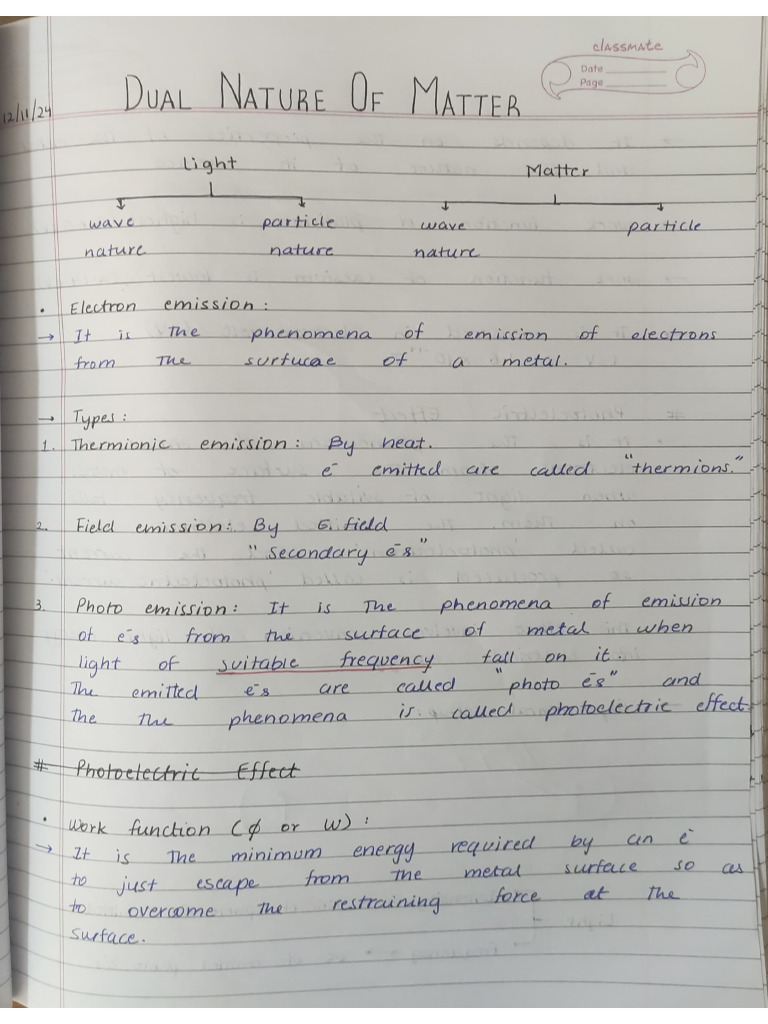 classmate
Date
Page
12/11/24
DUAL NATURE OF MATTER
Light Matter
wave particle wave particle
nature nature nature
• Electron emission :
→ It is The phenomena of emission of electrons
from The surfucae of a metal.
→ Types :
1. Thermionic emission : By heat.
e⁻ emitted are called "thermions."
2. Field emission : By E. field
"Secondary e⁻s"
3. Photo emission : It is The phenomena of emission
of e⁻s from the surface of metal when
light of suitable frequency fall on it.
The emitted e⁻s are called "photo e⁻s" and
the the phenomena is called photoelectric effect
# Photoelectric Effect
• Work function (ϕ or W) :
→ It is The minimum energy required by an e⁻
to just escape from the metal surface so as
to overcome The restraining force at The
surface.